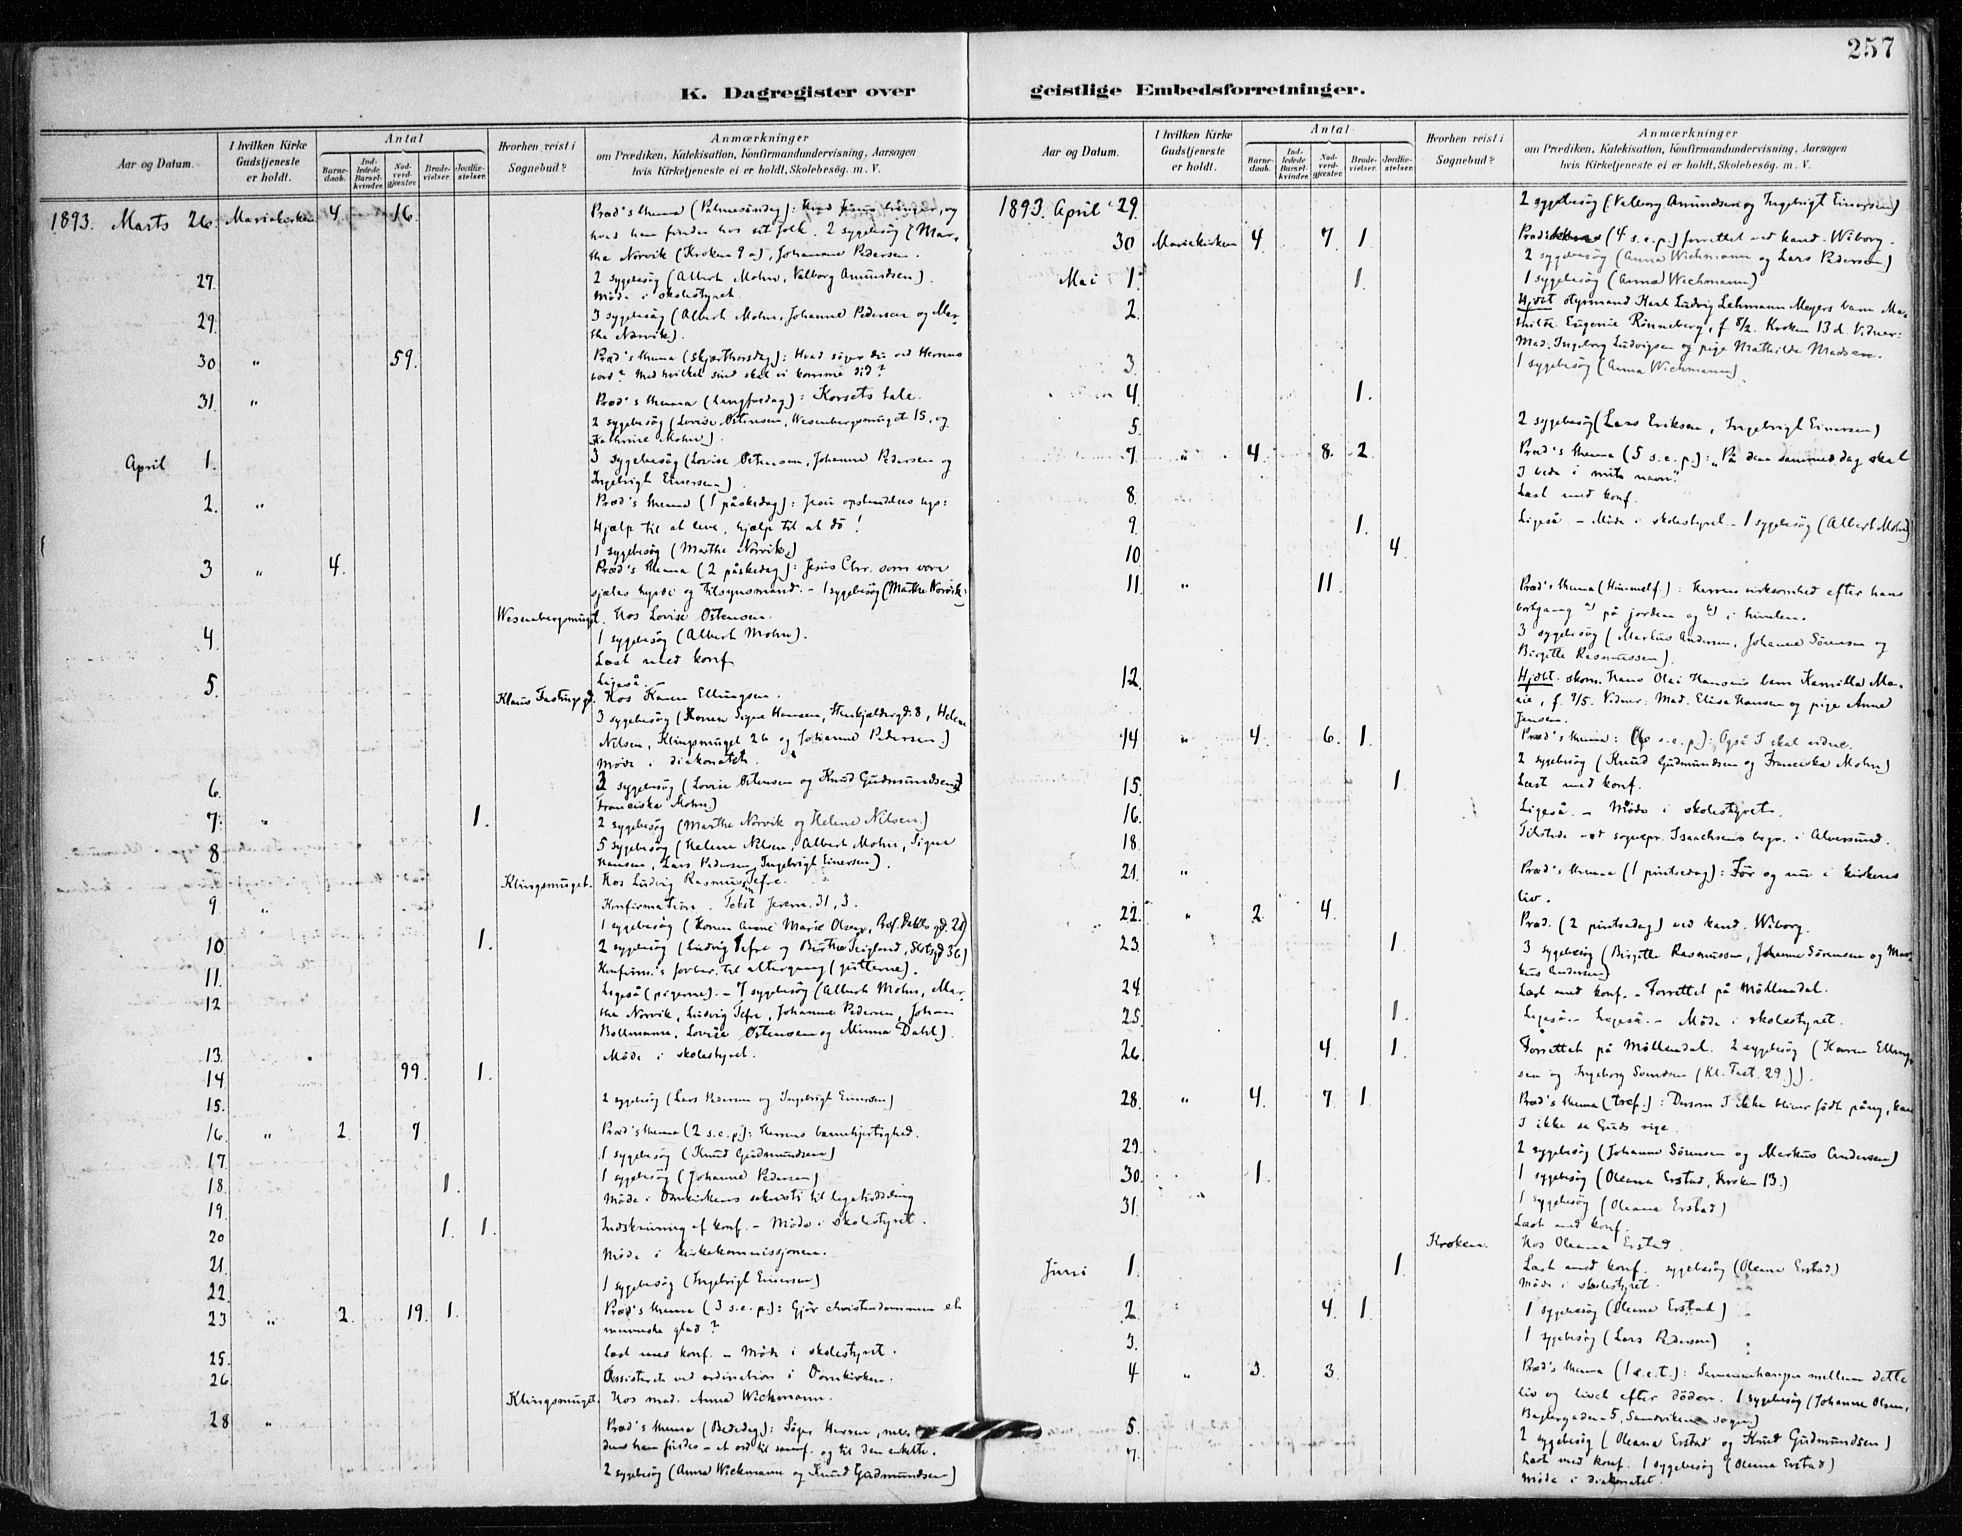 257
K. Dagregister over geistlige Embedsforretninger.
Aar og Datum. I hvilken Kirke Gudstjeneste er holdt. Antal Barnedaab. Indledede Barselkvinder. Nadverdgjester. Brudevielser. Jordfæstelser. Hvorhen reist i Sognebud? Anmærkninger om Prædiken, Katekisation, Konfirmandundervisning, Aarsagen hvis Kirketjeneste ei er holdt, Skolebesøg. m. V.
1893. Marts 26. Mariakirken 4. 16. Præd's thema (Palmesöndag): Hvad Jesus, og
hvad han finder hos sit folk. 2 sygebesög (Mar-
the Norvik (Kroken 9 a), Johanne Pedersen.
27. 2 sygebesög (Albert Mohn, Valborg Amundsen).
Möde i skolestyret.
29. 3 sygebesög (Albert Mohn, Johanne Pedersen og Mar-
the Norvik).
30 " 59. Præd's thema (skjærthorsdag): Hvad söger du ved Herrens
bord? Med hvilket sind skal vi komme did?
31 " Præd's thema (Langfredag): Korsets tale.
2 sygebesög (Lovise Ostensen, Wesenbergsmuget 15, og
Kathrine Mohn).
April 1. 3 sygebesög (Lovise Ostensen, Johanne Pedersen og
Ingebrigt Einersen).
2. " Præd's thema (1 påskedag): Jesu opstandelses lys:
Hjælp til at leve, hjælp til at dö!
1 sygebesög (Marthe Norvik.)
3 " 4. Præd's thema (2 påskedag): Jesus Chr. som vore
sjæles hyrde og tilsynsmand. - 1 sygebesög (Marthe Norvik)
Wesenbergsmuget. Hos Lovise Ostensen.
4. 1 sygebesög (Albert Mohn).
Læst med konf.
5. Ligeså. -
Klaus Fastingsgd. Hos Karen Ellingsen.
3 sygebesög (Konen Signe Hansen, Stenkjældergd. 8, Helene
Nilsen, Klingsmuget 26 og Johanne Pedersen.)
Möde i diakonatet.
6. 3 sygebesög (Lovise Ostensen og Knud Gudmundsen,
Franciska Mohn)
7. " 1. 2 sygebesög (Marthe Norvik og Helene Nilsen.)
8 5 sygebesög (Helene Nilsen, Albert Mohn, Signe
Hansen, Lars Pedersen, Ingebrigt Einersen).
Klingsmuget. Hos Ludvig Tefre.
9 " Konfirmation. Tekst Jerem. 31, 3.
1 sygebesög (Konen Anne Marie Olsen,
10 1. 2 sygebesög (Ludvig Tefre og
11. Konfirm.'s forber. til altergang (gutterne).
12 Ligeså (pigerne). - 7 sygebesög (Albert Mohn, Mar-
the Norvik, Ludvig Tefre, Johanne Pedersen, Johan
Bollmann, Lovise Ostensen og Minna Dahl).
13. Möde i skolestyret.
14 99. 1.
15. 2 sygebesög (Lars Pedersen og Ingebrigt Einersen)
16. " 2. 7. Præd's thema (2 s. e. p.): Herrens barmhjertighed.
17. 1 sygebesög (Knud Gudmundsen)
18. 1. 1 sygebesög (Johanne Pedersen)
19. Möde i Domkirkens sakristi til legatuddeling
20 1. 1. Indskrivning af konf. - Möde i skolestyret.
21. Möde i kirkekommissjonen.
22. 1 sygebesög (Ingebrigt Einersen)
23 " 2. 19. 1. Præd's thema (3 s. e. p.): Gjör christendommen et
menneske glad?
25. Læst med konf. - Möde i skolestyret.
26. Assisterede ved ordination i Domkirken.
Klingsmuget. Hos mad. Anna Wichmann.
28 " Præd's thema (Bededag): Söger Herren,
han findes - et ord til samf. og til den enkelte.
2 sygebesög (Anna Wichmann og Knud Gudmundsen)
Aar og Datum. I hvilken Kirke Gudstjeneste er holdt. Antal Barnedaab. Indledede Barselkvinder. Nadverdgjester. Brudevielser. Jordfæstelser. Hvorhen reist i Sognebud? Anmærkninger om Prædiken, Katekisation, Konfirmandundervisning, Aarsagen hvis Kirketjeneste ei er holdt, Skolebesøg. m. V.
1893. April 29. 2 sygebesög (Valborg Amundsen og Ingebrigt Einersen)
30 Mariekirken 4. 7. 1. (4 s. e. p.) forrettet ved kand. Wiborg.
2 sygebesög (Anna Wichmann og Lars Pedersen)
Mai 1. 1. 1 sygebesög (Anna Wichmann)
2. Hjdöbt styrmand Karl Ludvig Lehmann Meyers barn Ma-
thilde Eugenie Rönneberg, f. 8/2. Kroken 13 d. Vidner:
Mad. Ingeborg Ludvigsen og pige Mathilde Madsen.
3. 1 sygebesög (Anna Wichmann)
4. 1.
5. 2 sygebesög (Lars Eriksen, Ingebrigt Einersen)
7. " 4. 8. 2. Præd's thema (5 s. e. p.): "På den samme dag skal
I bede i mit navn."
8. Læst med konf.
9. 1. Ligeså - Möde i skolestyret - 1 sygebesög (Albert Mohn)
10 4.
11. " 11. Præd's thema (Himmelf.): Herrens virksomhed efter hans
bortgang a) på jorden og b) i himlen.
3 sygebesög (Markus Andersen, Johanne Sörensen og
Birgitte Rasmussen).
12. Hjdöbt. skom. Hans Olai Hansens barn Kamilla Ma-
rie, f. 9/5. Vidner: Mad. Elisa Hansen og pige Anna
Jensen.
14 " 4. 6. 1. Præd's thema: (6 s. e. p.): Også I skal vidne.
2 sygebesög (Knud Gudmundsen og Franciska Mohn)
15. 1. Læst med konf.
16. Ligeså. - Möde i skolestyret.
18. Tilstede ved sognepr. Isaachsens begr. i Alversund.
21. " Præd's thema (1 pintsedag): Før og nu i kirkens
liv.
22. " 2. 4. Præd. (2 pintsedag) ved kand. Wiborg.
23. 1. 3 sygebesög (Birgitte Rasmussen, Johanne Sörensen og Mar-
kus Andersen)
24. Læst med konf. - Forrettet på Möllendal.
25. 1. Ligeså. - Ligeså. - Möde i skolestyret.
26. 4. 1. Forrettet på Möllendal. 2 sygebesög (Karen Elling-
sen og Ingeborg Svendsen (Kl. Fast. 29)).
28. " 4. 7. 1. Præd's thema (tref.): Dersom I ikke bliver födt påny, kan
I ikke se Guds rige.
29. 2 sygebesög (Johanne Sörensen og Markus Andersen)
30. 1. 1 sygebesög (Oleana Erstad, Kroken 13.)
31. 1 sygebesög (Oleana Erstad)
Læst med konf.
Kroken. Hos Oleana Erstad.
Juni 1. 1. Læst med konf. sygebesög (Oleana Erstad)
Möde i skolestyret.
2. 4. 1. 1 sygebesög (Oleana Erstad)
3. 1 sygebesög (Lars Pedersen)
4 " 3. 3. Præd's thema (1 s. e. t.): Sammenhængen mellem dette
liv og livet efter döden. 1 sygebesög (Johanne Olsen,
5, Sandvikens sogn.)
5. 2 sygebesög (Oleana Erstad og Knud Gudmundsen)
7. Læst med konf. 1 sygebesög (Oleana Erstad)
Möde i diakonatet.